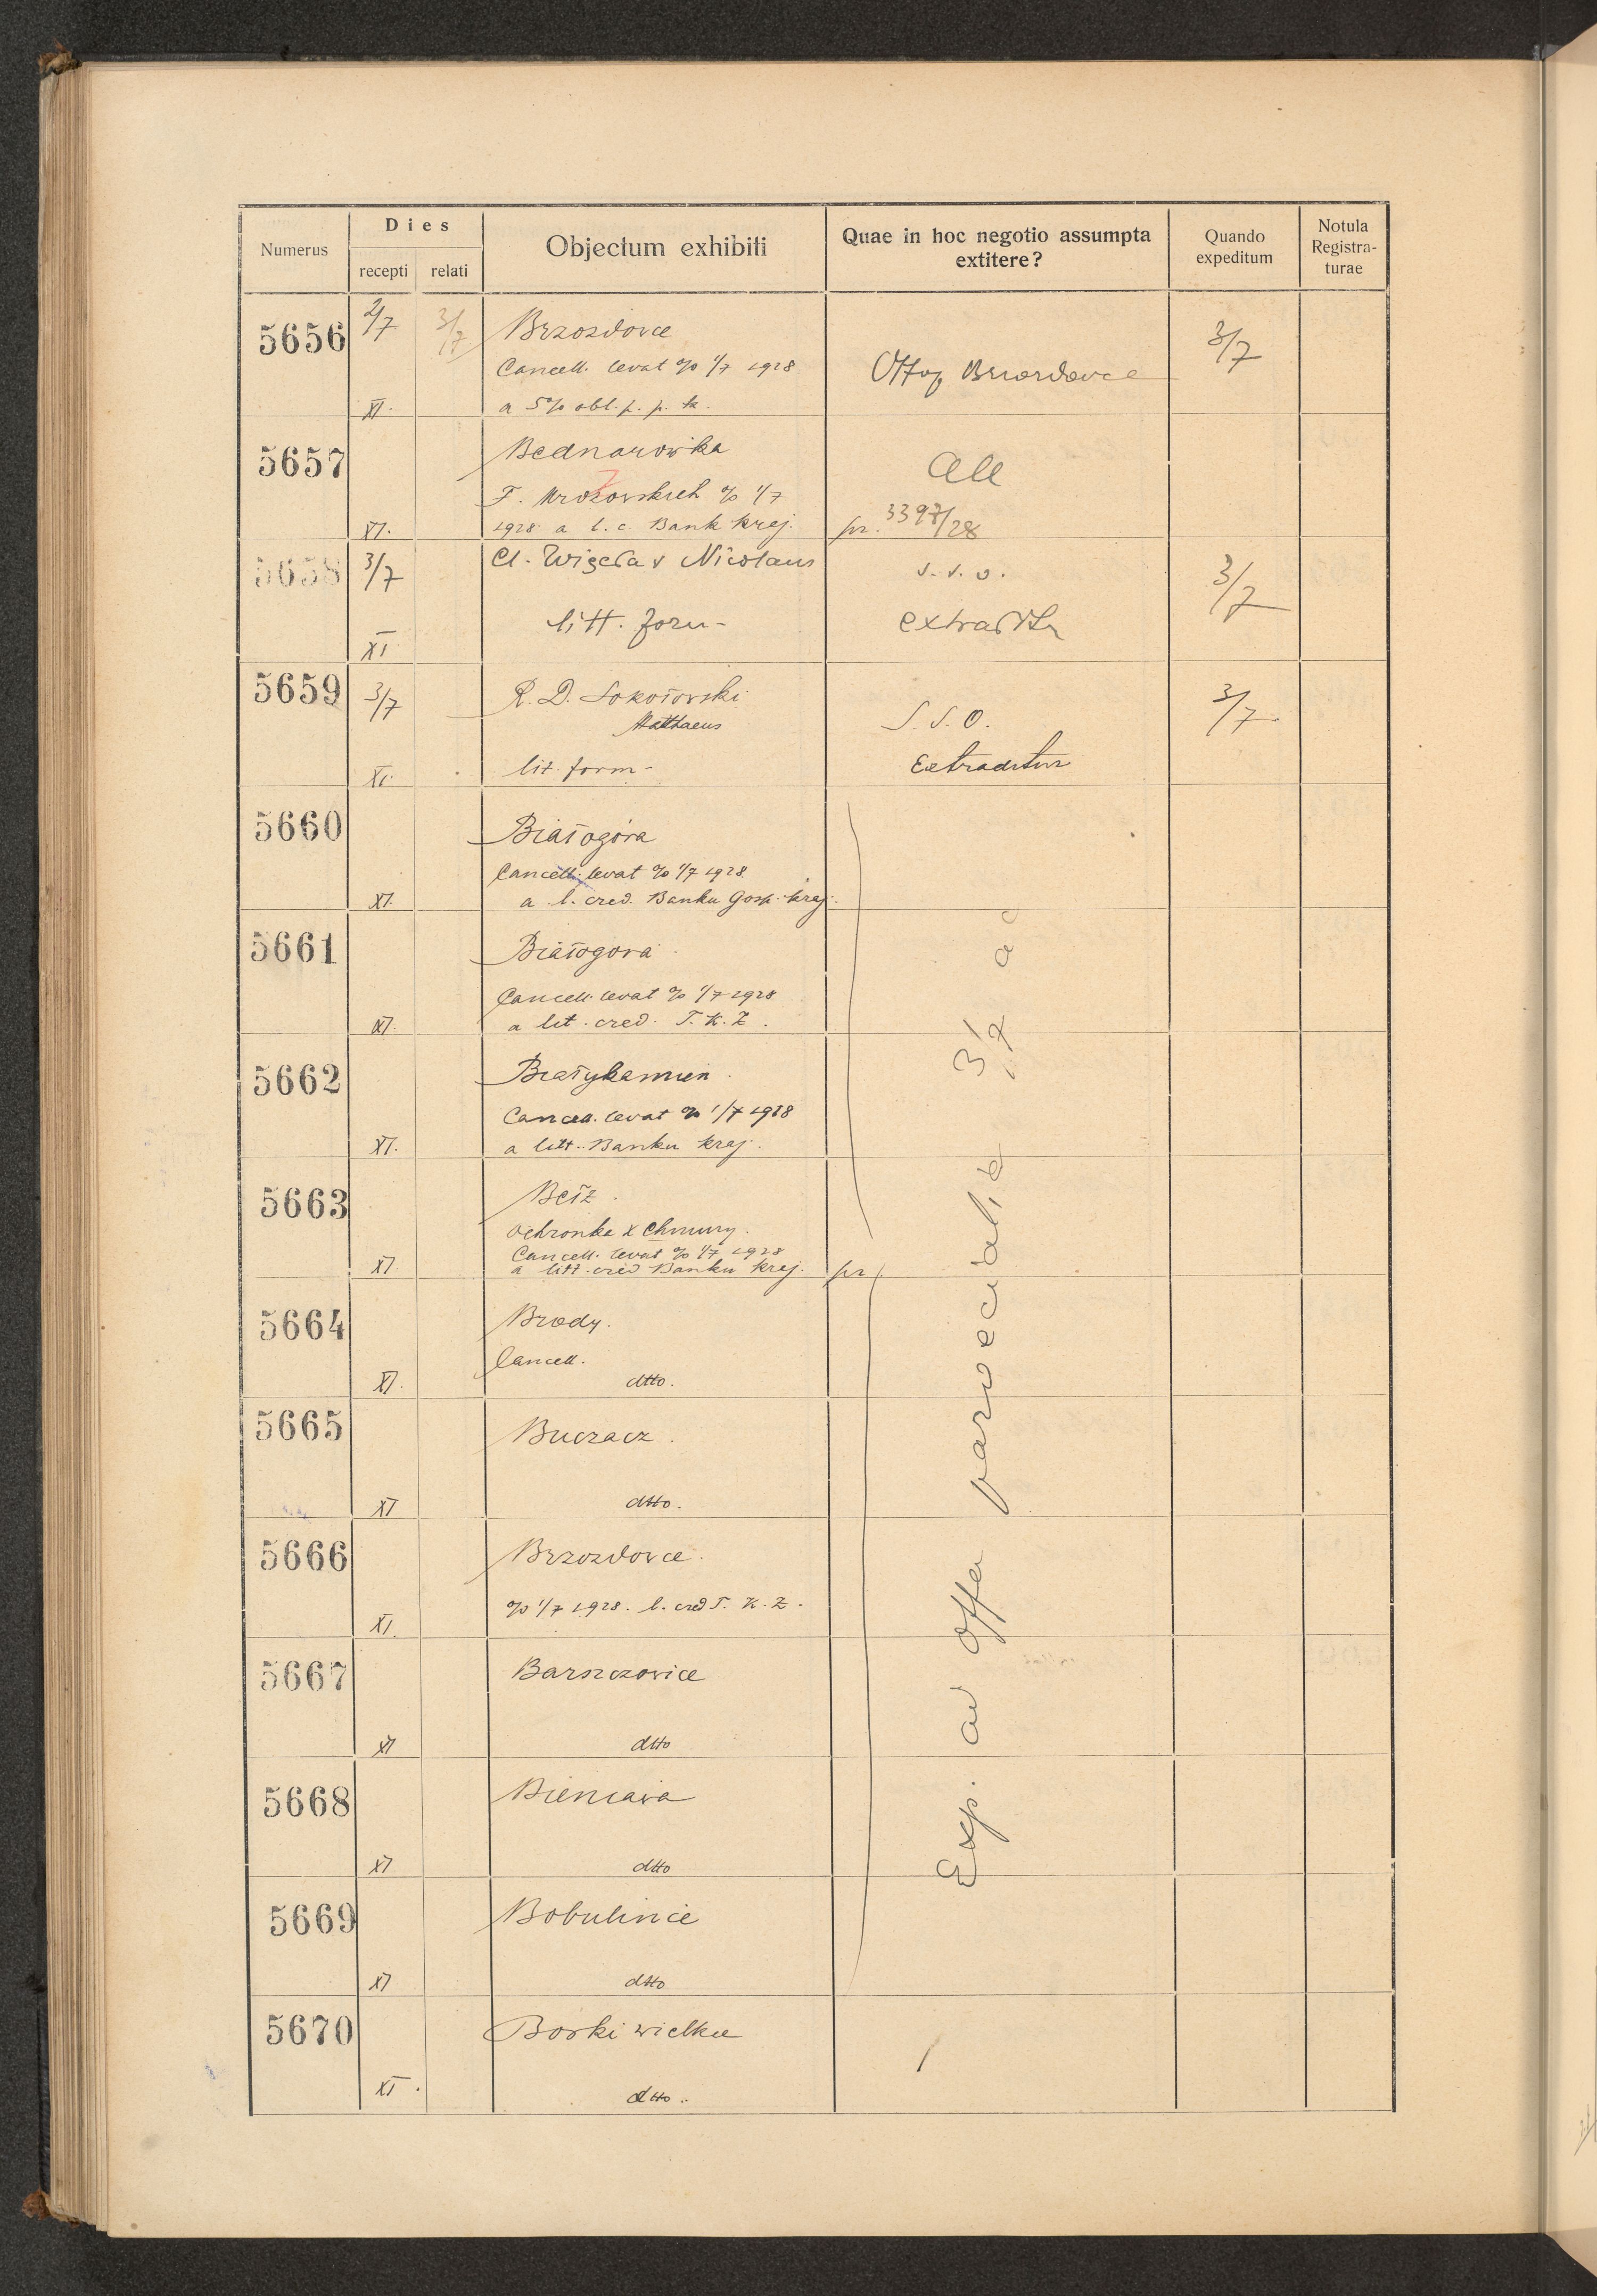 Numerus
Dies
recepti
relati
Objectum exhibiti
Quae in hoc negotio assumpta
extitere?
Quando
expeditum
Notula
Registra-
turae
5656
2/7
3/7
Brzozdovce
Cancell. levat % 1/7 1928
a 5% obl. p. p. k.
XI.
3/7
5657
Bednarówka
F. Mrozovskich % 1/7
1928 a l. c. Bank kraj.
XI.
pr. 3397/28
5658
3/7
Cl. Nicolaus
litt. form-
XI
s. s. o.
extraditur
3/7
5659
3/7
R. D. Sokołovski
Matthaeus
lit. form-
XI.
S. S. O.
Extraditur
3/7
5660
Białogóra
Cancell. levat % 1/7 1928.
a l. cred. Banku Gosp. kraj.
XI.
5661
Białogóra.
Cancell. levat % 1/7 1928
a lit. cred. T. K. Z.
XI.
5662
Białykamien.
Cancell. levat % 1/7 1928
a litt. Banku kraj.
XI.
5663
Bełz.
Ochronka X Chmury.
Cancell. levat % 1/7 1928
a litt. cred Banku kraj.
XI.
pr.
5664
Brody.
Cancell.
dtto.
XI.
5665
Buczacz.
dtto.
XI
5666
Brzozdovce.
% 1/7 1928. l. cred T. K. Z.
XI.
5667
Barszczovice
dtto
XI
5668
dtto
XI
5669
Bobulince
dtto
XI
5670
Borki wielkie
dtto.
XI.
Exp. ad offer parvecialia 3/7